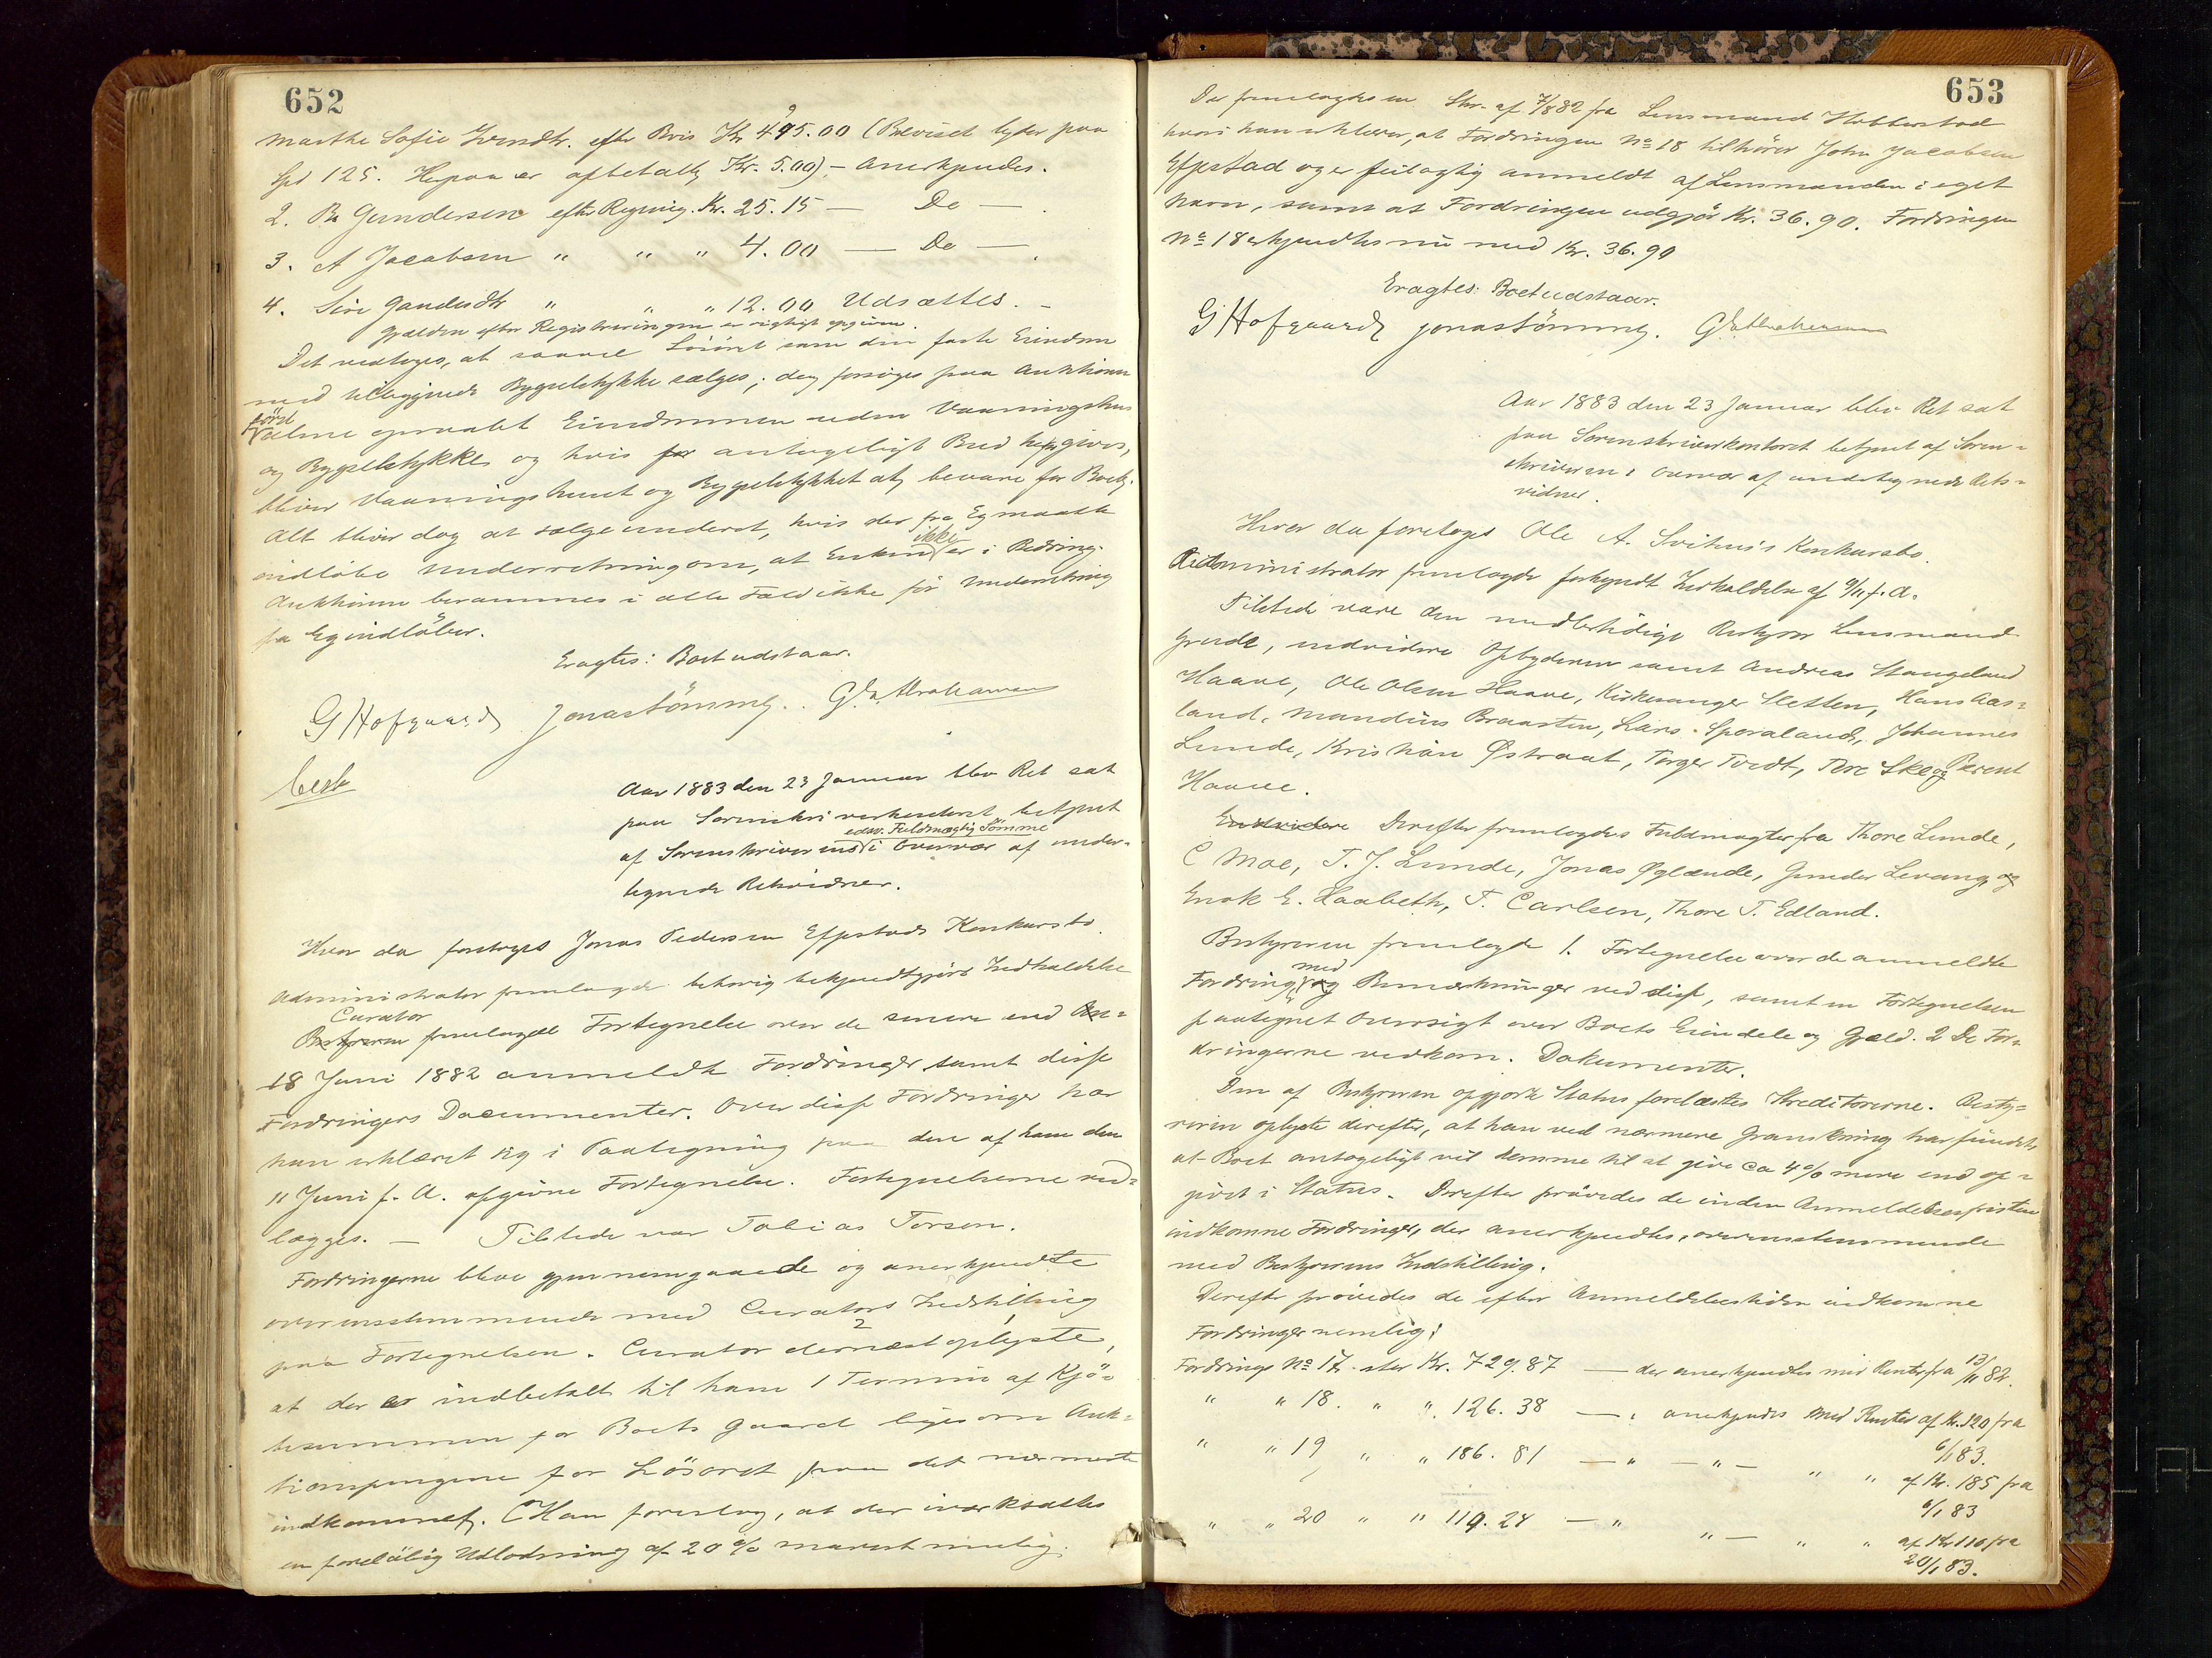 652
Marthe Sofie Svendtr. efter Bevis Kr 495.00 (Beviset lyder paa
Spd 125. Herpaa er afbetalt Kr. 5.00) – Anerkjendes.
2. B. Gundersen efter Regning. Kr. 25.15 — Do — .
3. A Jacobsen " " " 4.00 — Do — .
4. Siri " " " 12.00 Udsættes. –
Gjælden efter Registreringen er rigtigt opgiven.
Det vedtoges, at saavel Løsøret som den faste Eiendom
med tilliggende Bygselstykke sælges; dog forsøges paa Auktionen
først
opraabt Eiendommen uden Vaaningshus
og Bygselstykke og hvis for antageligt Bud gives,
bliver Vaaningshuset og Bygselstykket at bevare for Boet.
Alt bliver dog at sælge underet, hvis der fra
ikke
indløbe Underretning om, at Enken er i Bedring.
Auktionen berammes i alle Fald ikke før Underretning
fra indløber.
Eragtes: Boet udstaar.
G Hofgaard Jonas Sömme. G. Abrahamsen
Besk
Aar 1883 den 23 Januar blev Ret sat
paa Sorenskriverkontoret betjent
edsv. Fuldmægtig Sömme
af Sorenskriverens i Overvær af under-
tegnede Retsvidner.
Hvor da foretoges Jonas Pedersen Efpstads Konkursbo.
Administrator fremlagde behørig bekjendtgjørt Indkaldelse
Curator
Bestyreren fremlagde Fortegnelse over de senere end
18 Juni 1882 anmeldte Fordringer samt disse
Fordringers Documenter. Over disse Fordringer har
han erklæret sig i Paategning paa den af ham den
11 Juni f. A. afgivne Fortegnelse. Fortegnelserne ved-
lægges. — Tilstede var Tobias Torsen.
Fordringerne bleve gjennemgaaede og anerkjendte
overensstemmende med Curators Indstilling
paa Fortegnelsen. Curator dernæst oplyste,
at der er indbetalt til ham 1 Termin af Kjø-
besummen for Boets Gaard ligesom Auk-
tionspengene for Løsøret paa det nærmeste
indkommet. Han foreslog, at der iværksattes
en foreløbig Udlodning af 20 % snarest mulig.
653
Der fremlagdes en Skr. af 7/8 82 fra Lensmand Hobberstad
hvori han erklærer, at Fordringen No 18 tilhører John Jacobsen
Efpstad og er feilagtig anmeldt af Lensmanden i eget
Navn, samt at Fordringen udgjør Kr. 36.90. Fordringen
No 18 erkjendtes nu med Kr. 36.90
Eragtes: Boet udstaar.
G Hofgaard Jonas Sömme. G. Abrahamsen
Aar 1883 den 23 Januar blev Ret sat
paa Sorenskriverkontoret betjent af Soren-
skriveren i Overvær af undertegnede Rets-
vidner.
Hvor da foretoges Ole A. Svihus's Konkursbo.
Administrator fremlagde forkyndt Indkaldelse af 9/11 f. A.
Tilstede vare den midlertidige Bestyrer Lensmand
Grude, endvidere Opbyderen samt Andreas Stangeland
Haave, Ole Olsen Haave, Kirkesanger Sletten, Hans Aas-
land, Mandius Braasten, Lars Sporaland, Johannes
Lunde, Kristian Østraat, Torger Tvedt, Tore Skeie og Berent
Haave.
Endvidere Derefter fremlagdes Fuldmagter fra Thore Lunde,
C Moe, T. J. Lunde, Jonas Øglænde, Gunder Levang, og
Enok E. Haabeth, T. Carlsen, Thore T. Edland.
Bestyreren fremlagde 1. Fortegnelse over de anmeldte
med
Fordringer og Bemærkninger ved disse, samt en Fortegnelsen
paategnet Oversigt over Boets Eiendele og Gjæld. 2 De For-
dringerne vedkom. Dokumenter.
Den af Bestyreren opgjorte Status forelæstes Kreditorerne. Besty-
reren oplyste derefter, at han ved nærmere Granskning har fundet,
at Boet antageligt vil komme til at give Ca 4 % mere end op-
givet i Status. Derefter prøvedes de inden Anmeldelsesfristen
indkomne Fordringer, der anerkjendtes, overensstemmende
med Bestyrerens Indstilling.
Derefter prøvedes de efter Anmeldelsestiden indkomne
Fordringer nemlig:
Fordringe No 17. stor Kr. 729.87 — der anerkjendtes med Rente fra 13/11 82.
" " 18. " " 126.38 — " anerkjendes med Renter af Kr. 120 fra
6/1 83.
" " 19 " " 186.81 — " — " — " " af Kr. 185 fra
6/1 83
" " 20 " " 119.24 — " " — " " af Kr 110 fra
20/1 83.